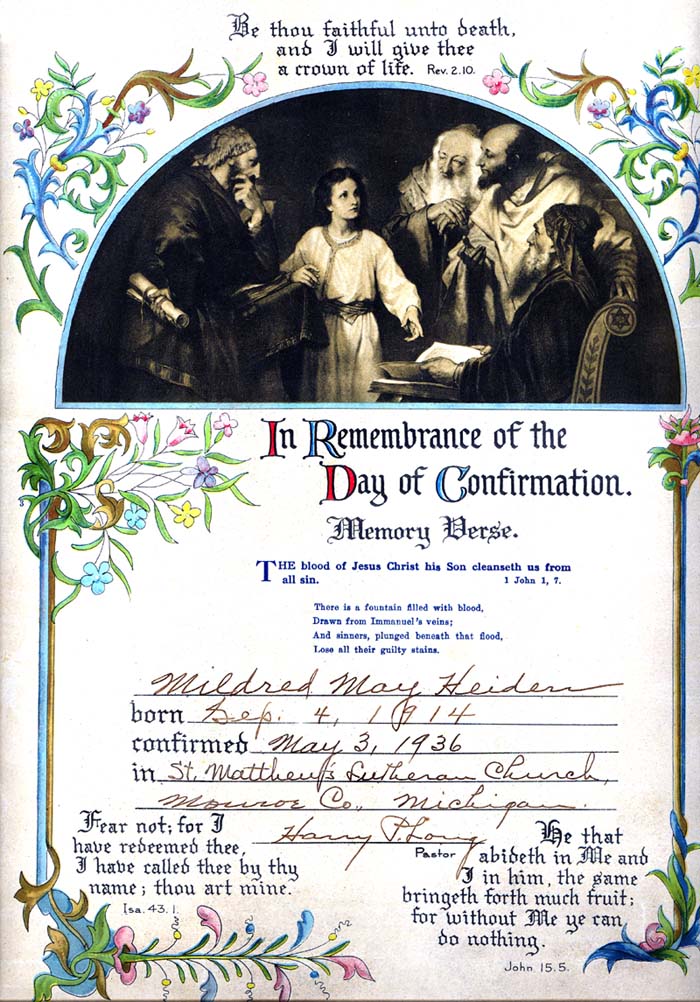 Be thou faithful unto death,
and I will give thee
a crown of life. Rev. 2.10.
In Remembrance of the
Day of Confirmation.
Memory Verse.
THE blood of Jesus Christ his Son cleanseth us from
all sin. 1 John 1, 7.
There is a fountain filled with blood,
Drawn from Immanuel's veins;
And sinners, plunged beneath that flood,
Lose all their guilty stains.
Mildred May Heiden
born Sep. 4, 1914
confirmed May 3, 1936
in St. Matthew's Lutheran Church,
Monroe Co., Michigan.
Harry P. Long
Pastor
Fear not; for I
have redeemed thee,
I have called thee by thy
name; thou art mine.
Isa. 43. 1.
He that
abideth in Me and
I in him, the same
bringeth forth much fruit;
for without Me ye can
do nothing.
John 15. 5.